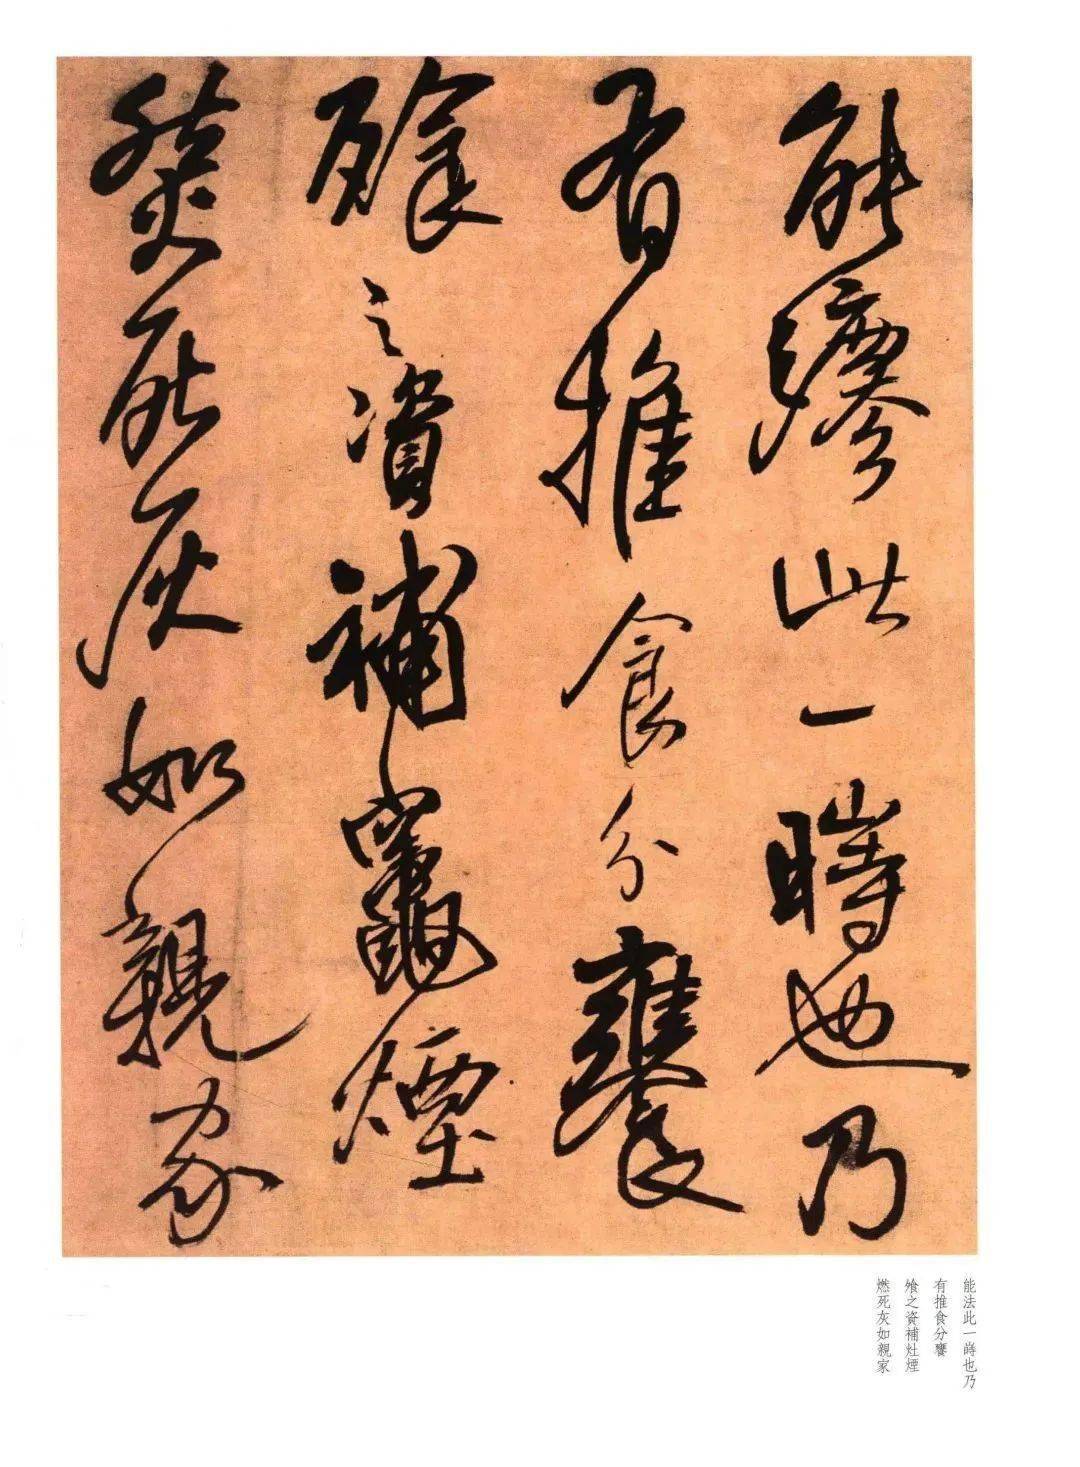 能此一時也乃
有推食分饔
飧之資補竈煙
燃死灰如親家
能法此一時也乃
有推食分饔
飧之資補灶煙
燃死灰如親家